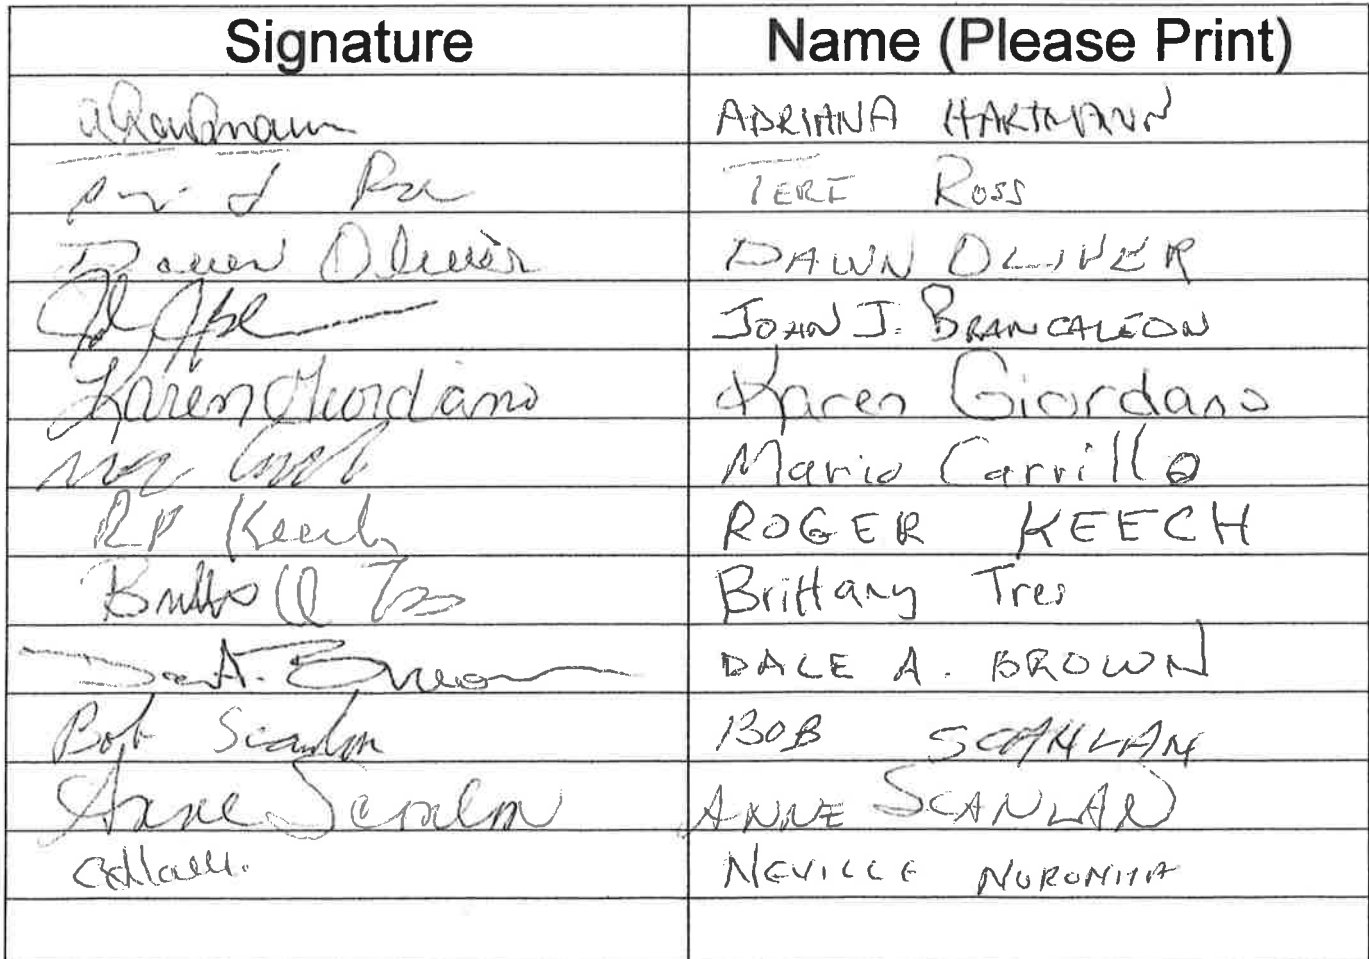 Signature Name (Please Print)
ADRIANA HARTMANN
TERI ROSS
Dawn Oliver DAWN OLIVER
JOHN J. BRANCALEON
Karen Giordano Karen Giordano
Mario Carrillo
RP Keech ROGER KEECH
Brittany Tres
Brown DALE A. BROWN
Bob Scanlan BOB SCANLAN
Anne Scanlan ANNE SCANLAN
NEVILLE NORONHA